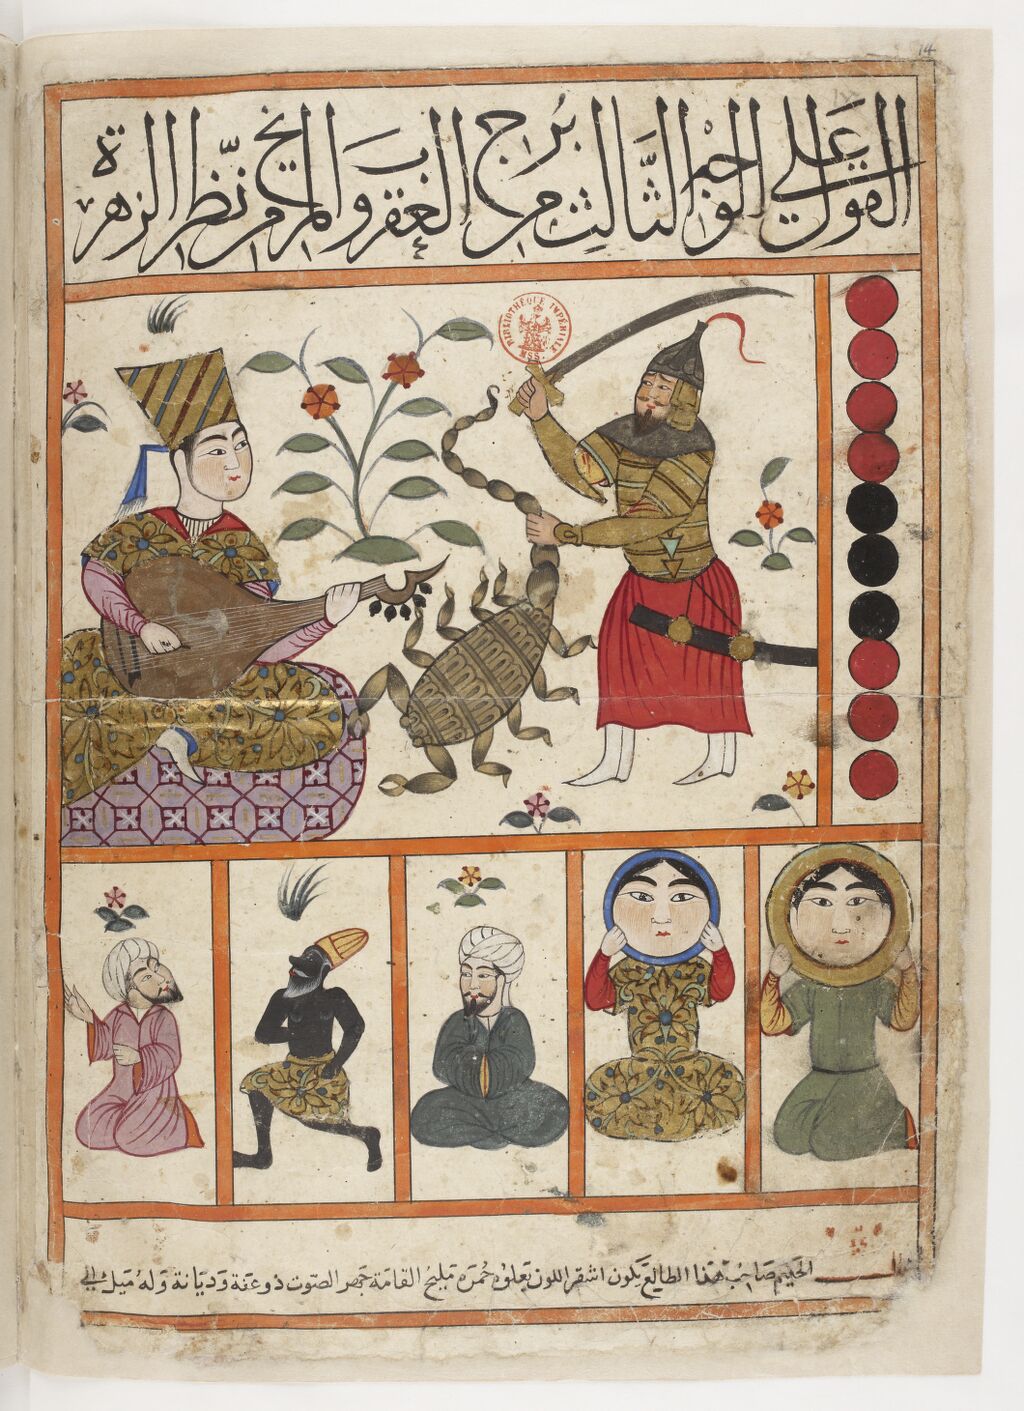 14
القول على الوجه الثالث من برج العقرب والمريخ من نظر الزهرة
BIBLIOTHÈQUE IMPÉRIALE
MSS.
الحكيم صاحب هذا الطالع يكون اشقر اللون تعلوه حمرة مليح القامة جهر الصوت ذو عفة وديانة وله ميل الى